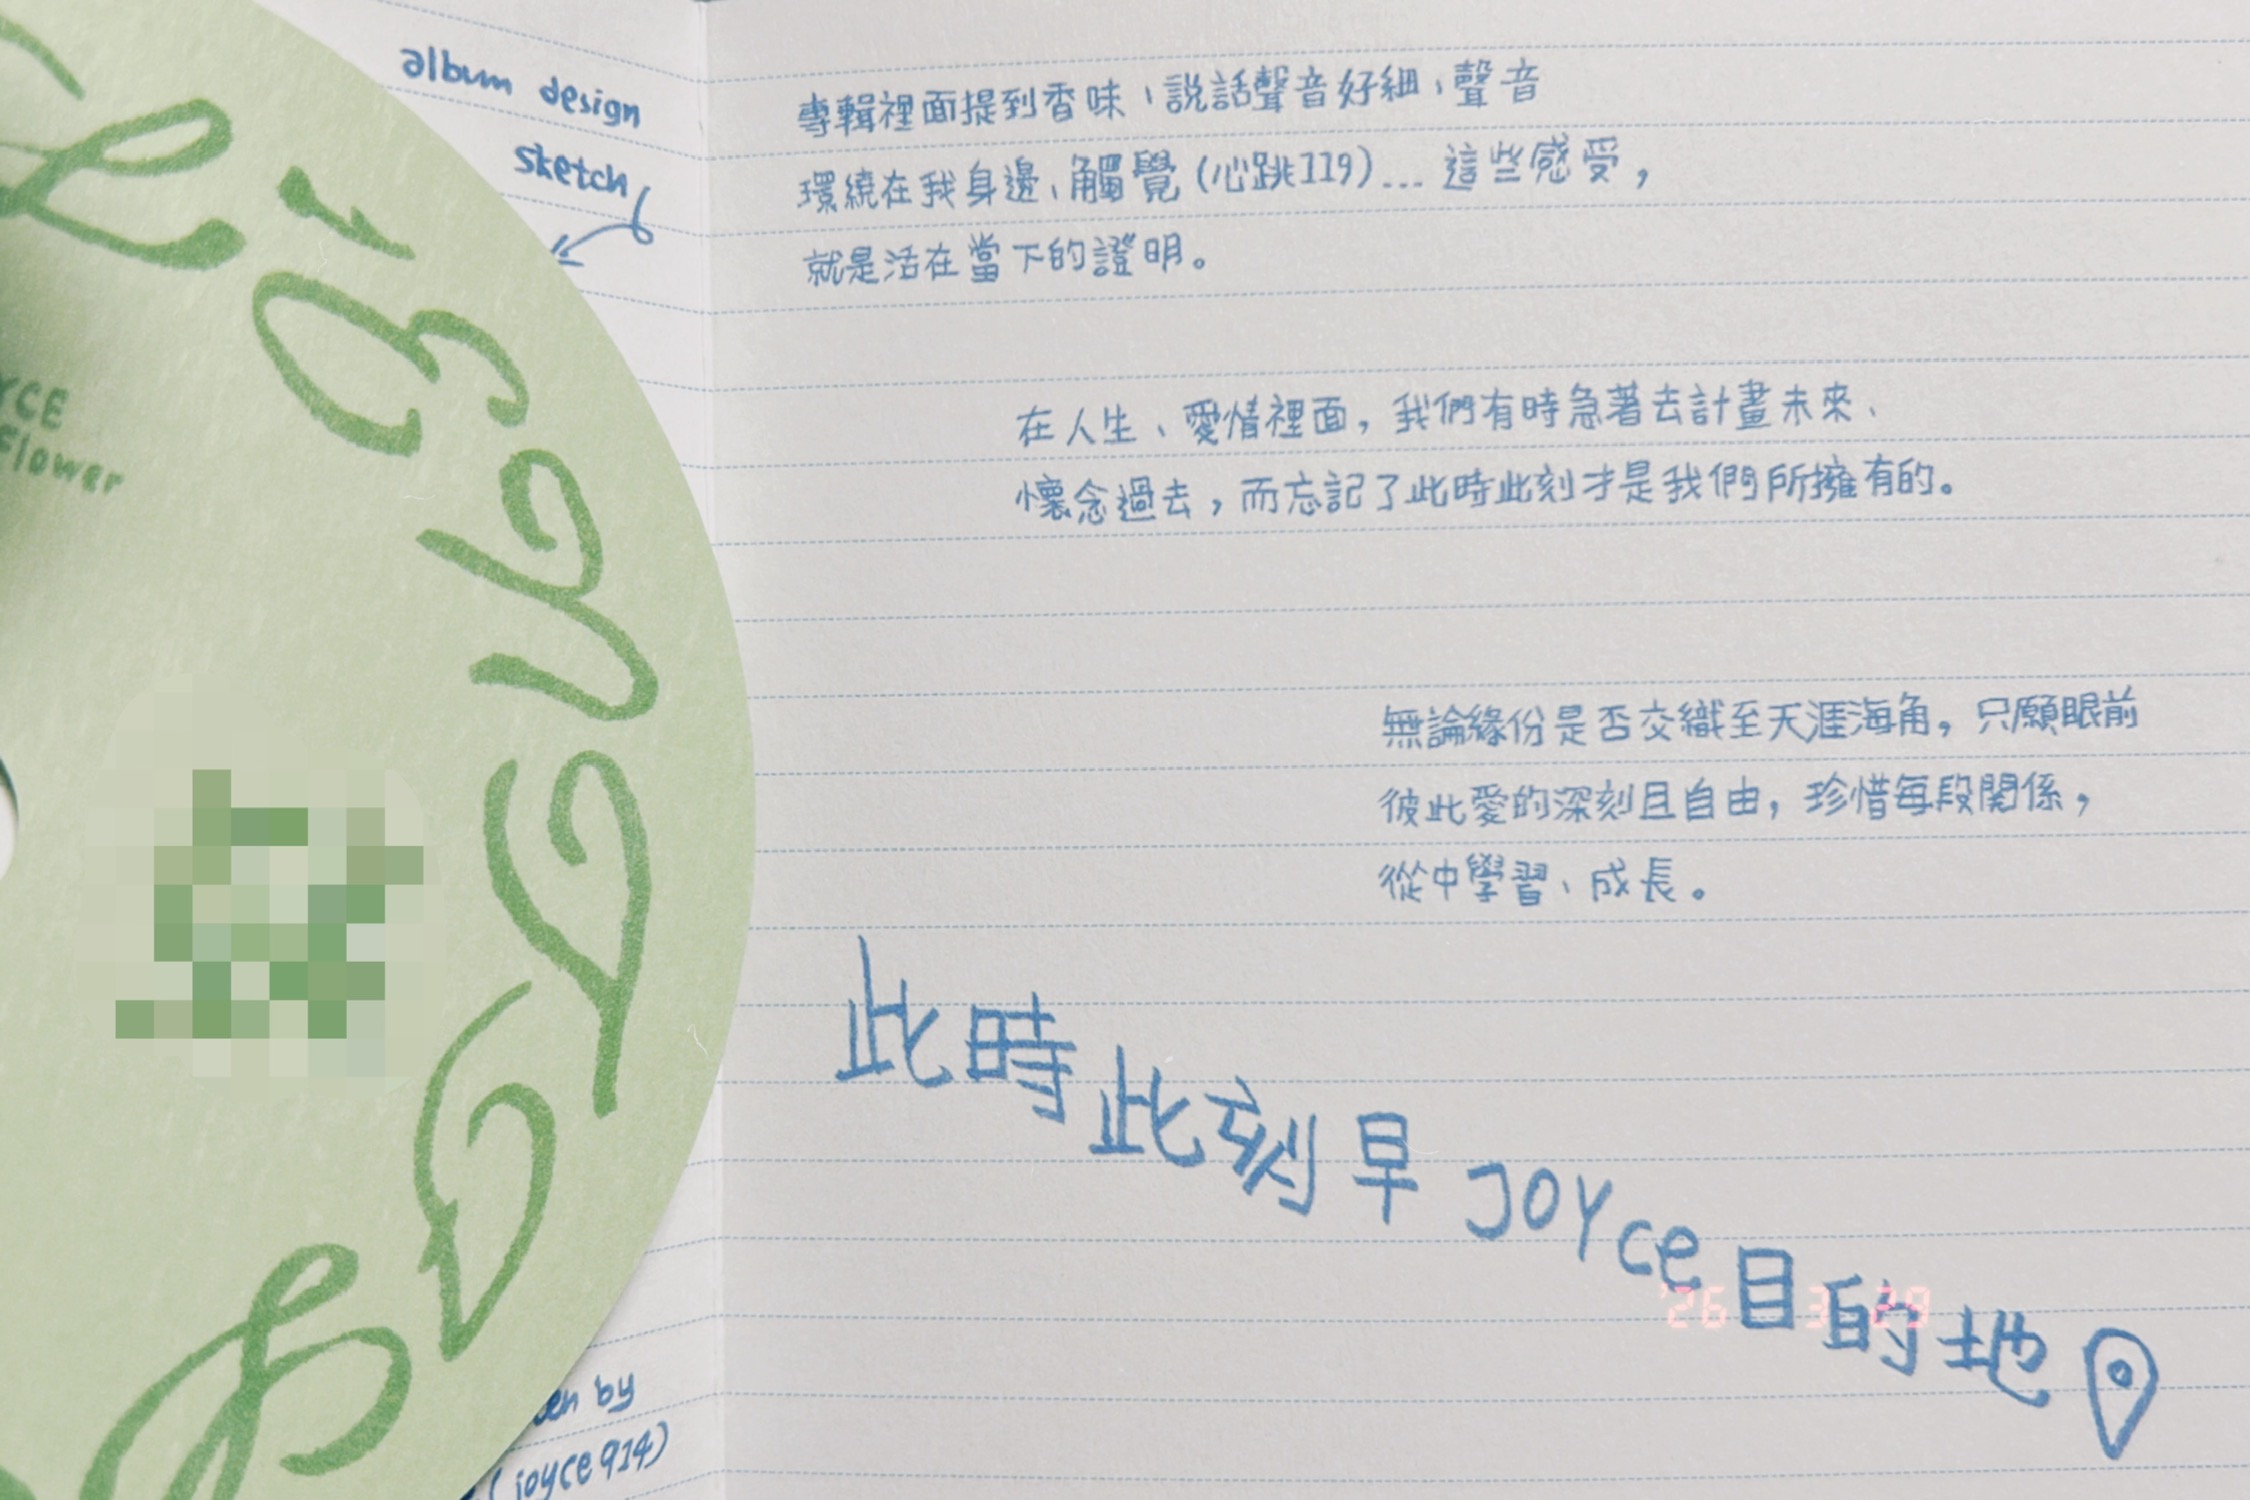 album design
sketch
專輯裡面提到香味、說話聲音好細、聲音
環繞在我身邊、觸覺(心跳119)...這些感受,
就是活在當下的證明。
在人生、愛情裡面,我們有時急著去計畫未來、
懷念過去,而忘記了此時此刻才是我們所擁有的。
無論緣份是否交織至天涯海角,只願眼前
彼此愛的深刻且自由,珍惜每段關係,
從中學習、成長。
此時此刻早 JOYce目的地
YCE
Flower
by
(joyce914)
'26 3 29